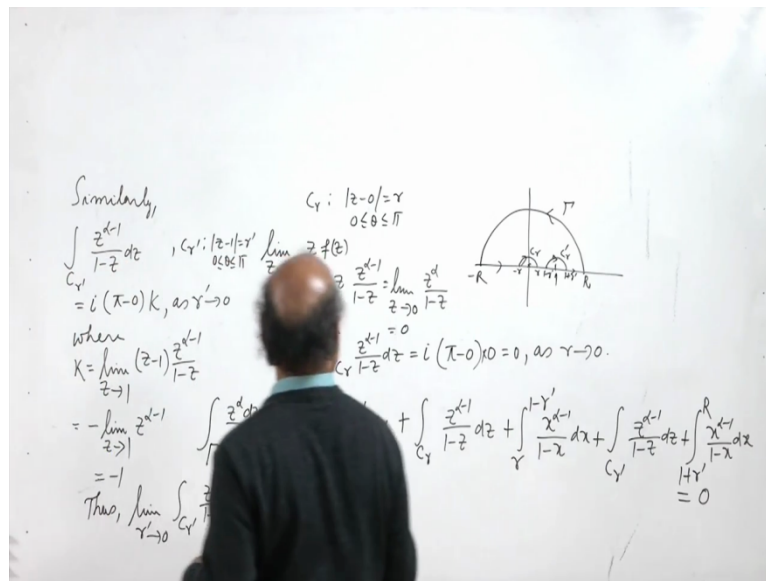 Similarly,
∫_{C_{r'}} z^{α-1}/(1-z) dz , C_{r'}: |z-1|=r'
0≤θ≤π
= i(π-0)K, as r'→0
where
K = lim_{z→1} (z-1) z^{α-1}/(1-z)
= -lim_{z→1} z^{α-1}
= -1
Thus, lim_{r'→0} ∫_{C_{r'}}
C_r : |z-0|=r
0≤θ≤π
lim z f(z)
z^{α-1}/(1-z) = lim_{z→0} z^α/(1-z)
= 0
C_r z^{α-1}/(1-z) dz = i(π-0)×0=0, as r→0.
+ ∫_{C_r} z^{α-1}/(1-z) dz + ∫_r^{1-r'} x^{α-1}/(1-x) dx + ∫_{C_{r'}} z^{α-1}/(1-z) dz + ∫_{1+r'}^R x^{α-1}/(1-x) dx
= 0
Γ
C_r C_{r'}
-R -r r 1-r' 1 1+r' R